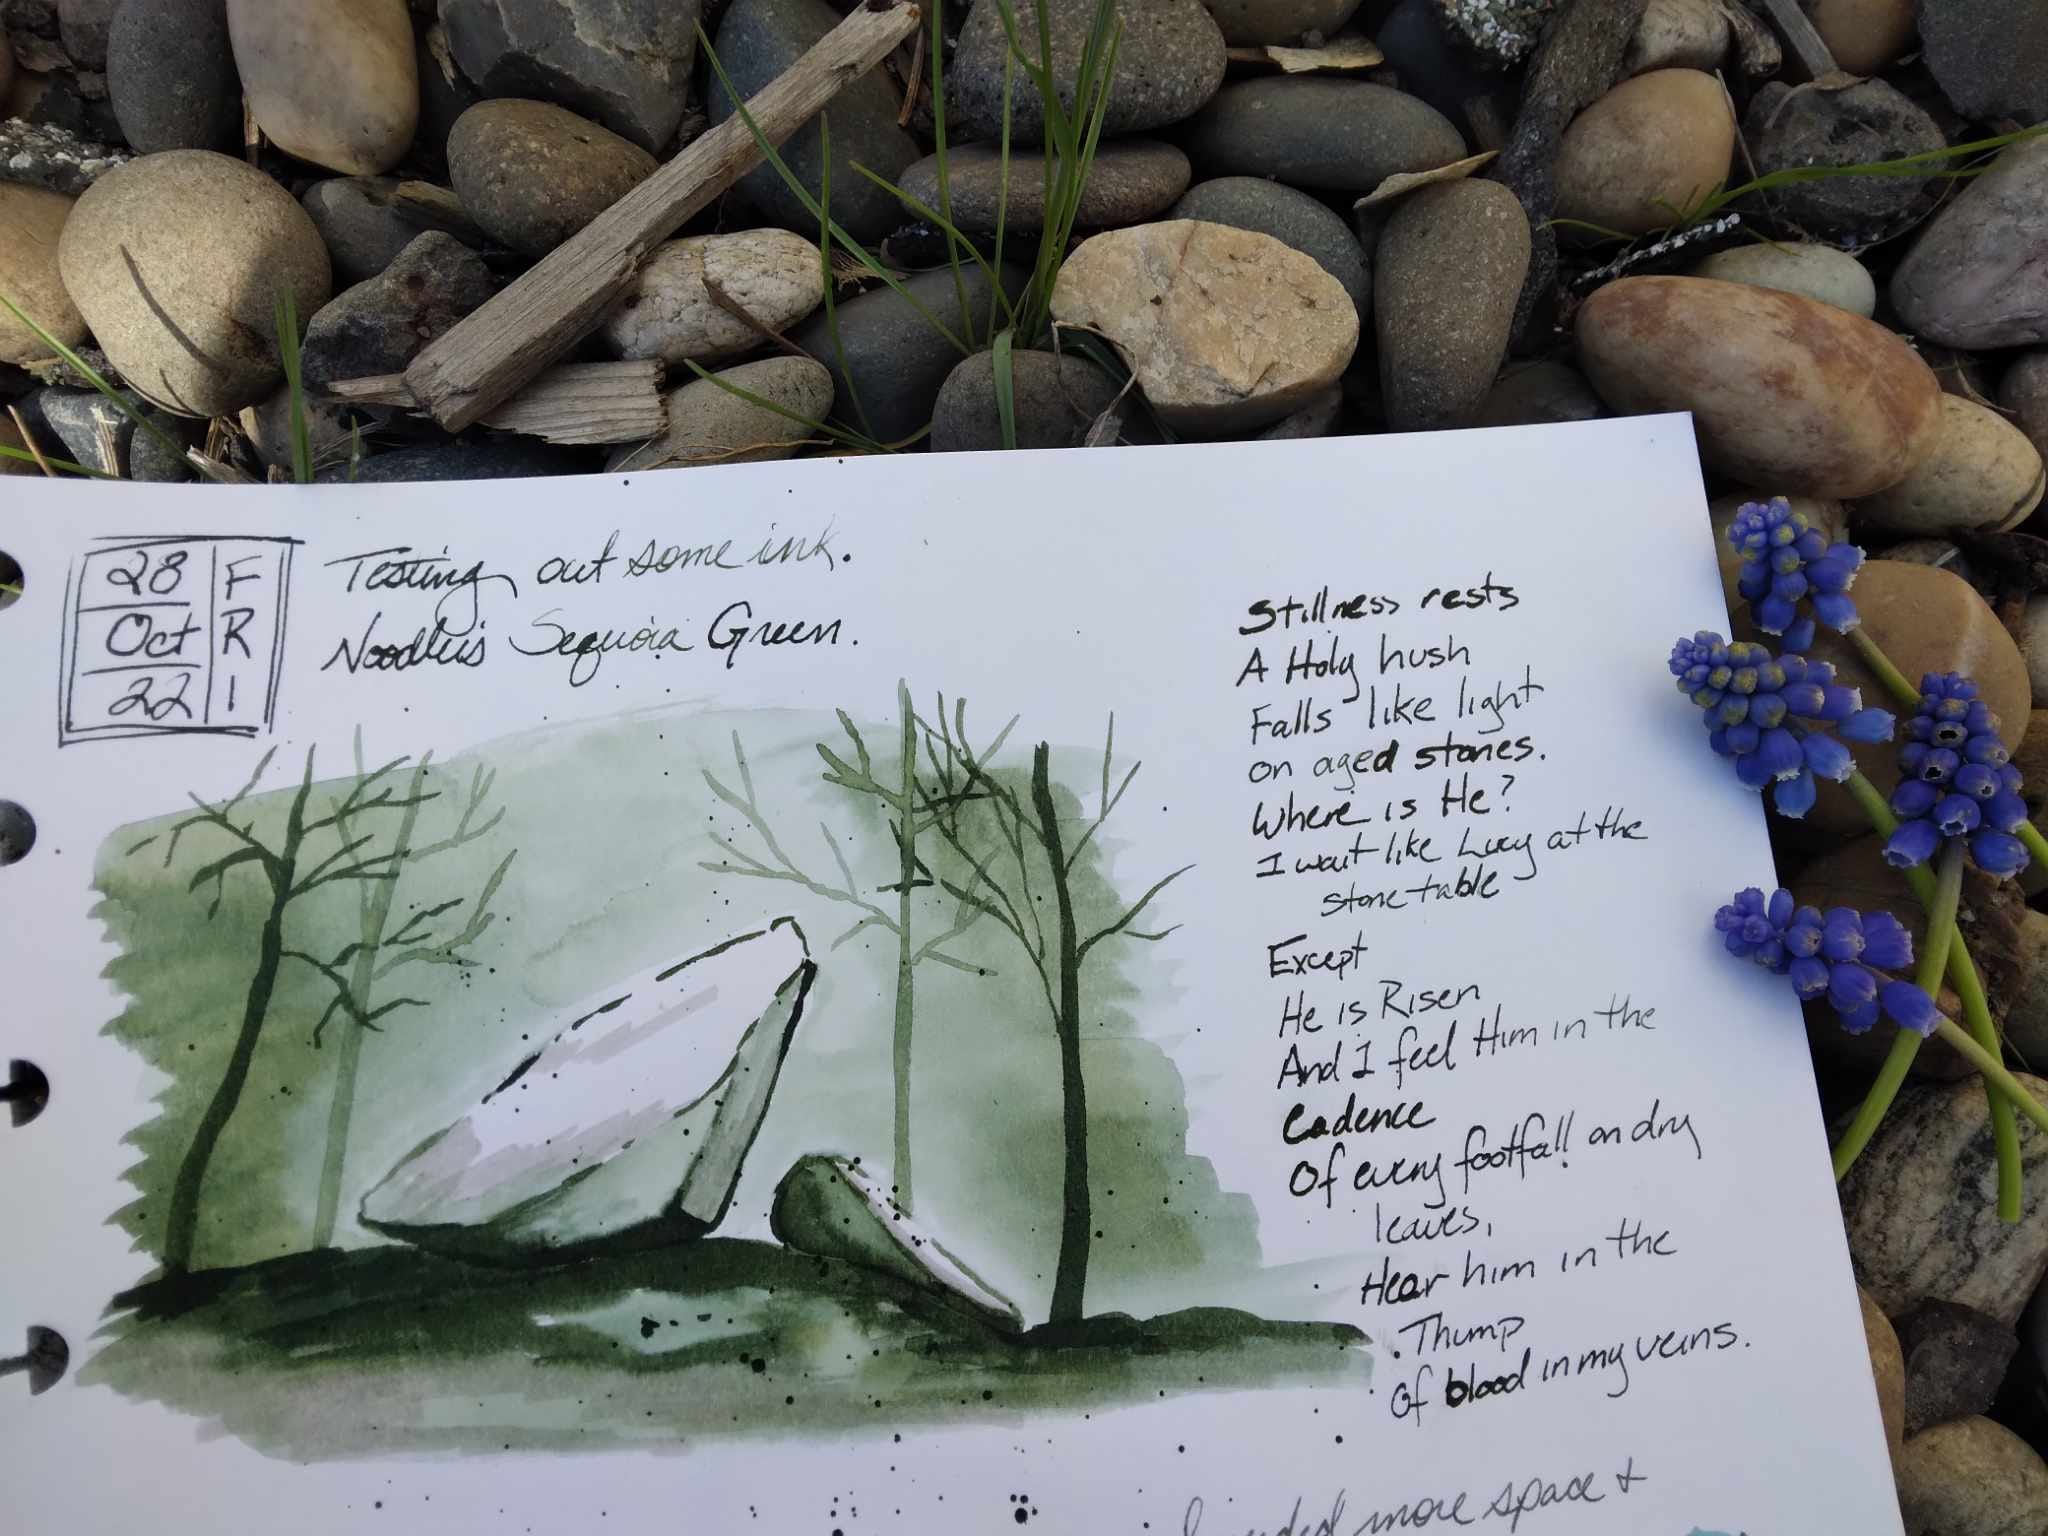 28
Oct
22
FRI
Testing out some ink.
Noodler's Sequoia Green.
Stillness rests
A Holy hush
Falls like light
on aged stones.
Where is He?
I wait like Lucy at the
stone table
Except
He is Risen
And I feel Him in the
Cadence
Of every footfall on dry
leaves,
Hear him in the
Thump
Of blood in my veins.
I needed more space &